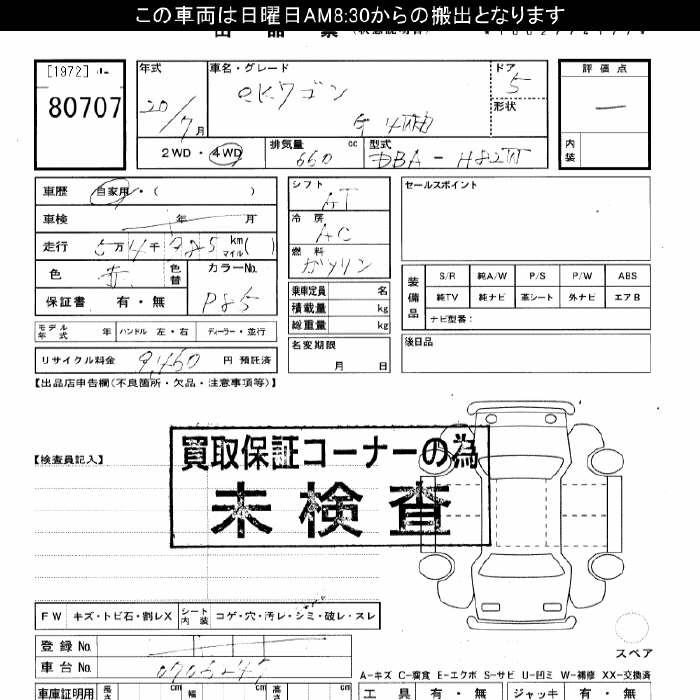 この車両は日曜日AM8:30からの搬出となります
[1972]
80707
年式
20/7月
車名・グレード
eKワゴン
G 4WD
ドア
5
形状
評価点
内装
2WD・4WD
排気量
660 cc
型式
DBA-H82W
車歴 自家用・( )
車検 年 月
走行 5万4千985 km マイル ( )
色 赤 色替
カラーNo.
P85
保証書 有・無
シフト
AT
冷房
AC
燃料
ガソリン
乗車定員 名
積載量 kg
総重量 kg
名変期限
月 日
セールスポイント
装備品
S/R 純A/W P/S P/W ABS
純TV 純ナビ 革シート 外ナビ エアB
ナビ型番：
後日品
モデル年式 年 ハンドル 左・右 ディーラー・並行
リサイクル料金 9,460 円 預託済
【出品店申告欄(不良箇所・欠品・注意事項等)】
【検査員記入】
買取保証コーナーの為
未検査
FW キズ・トビ石・割レX シート内装 コゲ・穴・汚レ・シミ・破レ・スレ
スペア
登録No.
車台No.
A-キズ C-腐食 E-エクボ S-サビ U-凹ミ W-補修 XX-交換済
車庫証明用 長さ cm 幅 cm 高さ cm
工具 有・無 ジャッキ 有・無